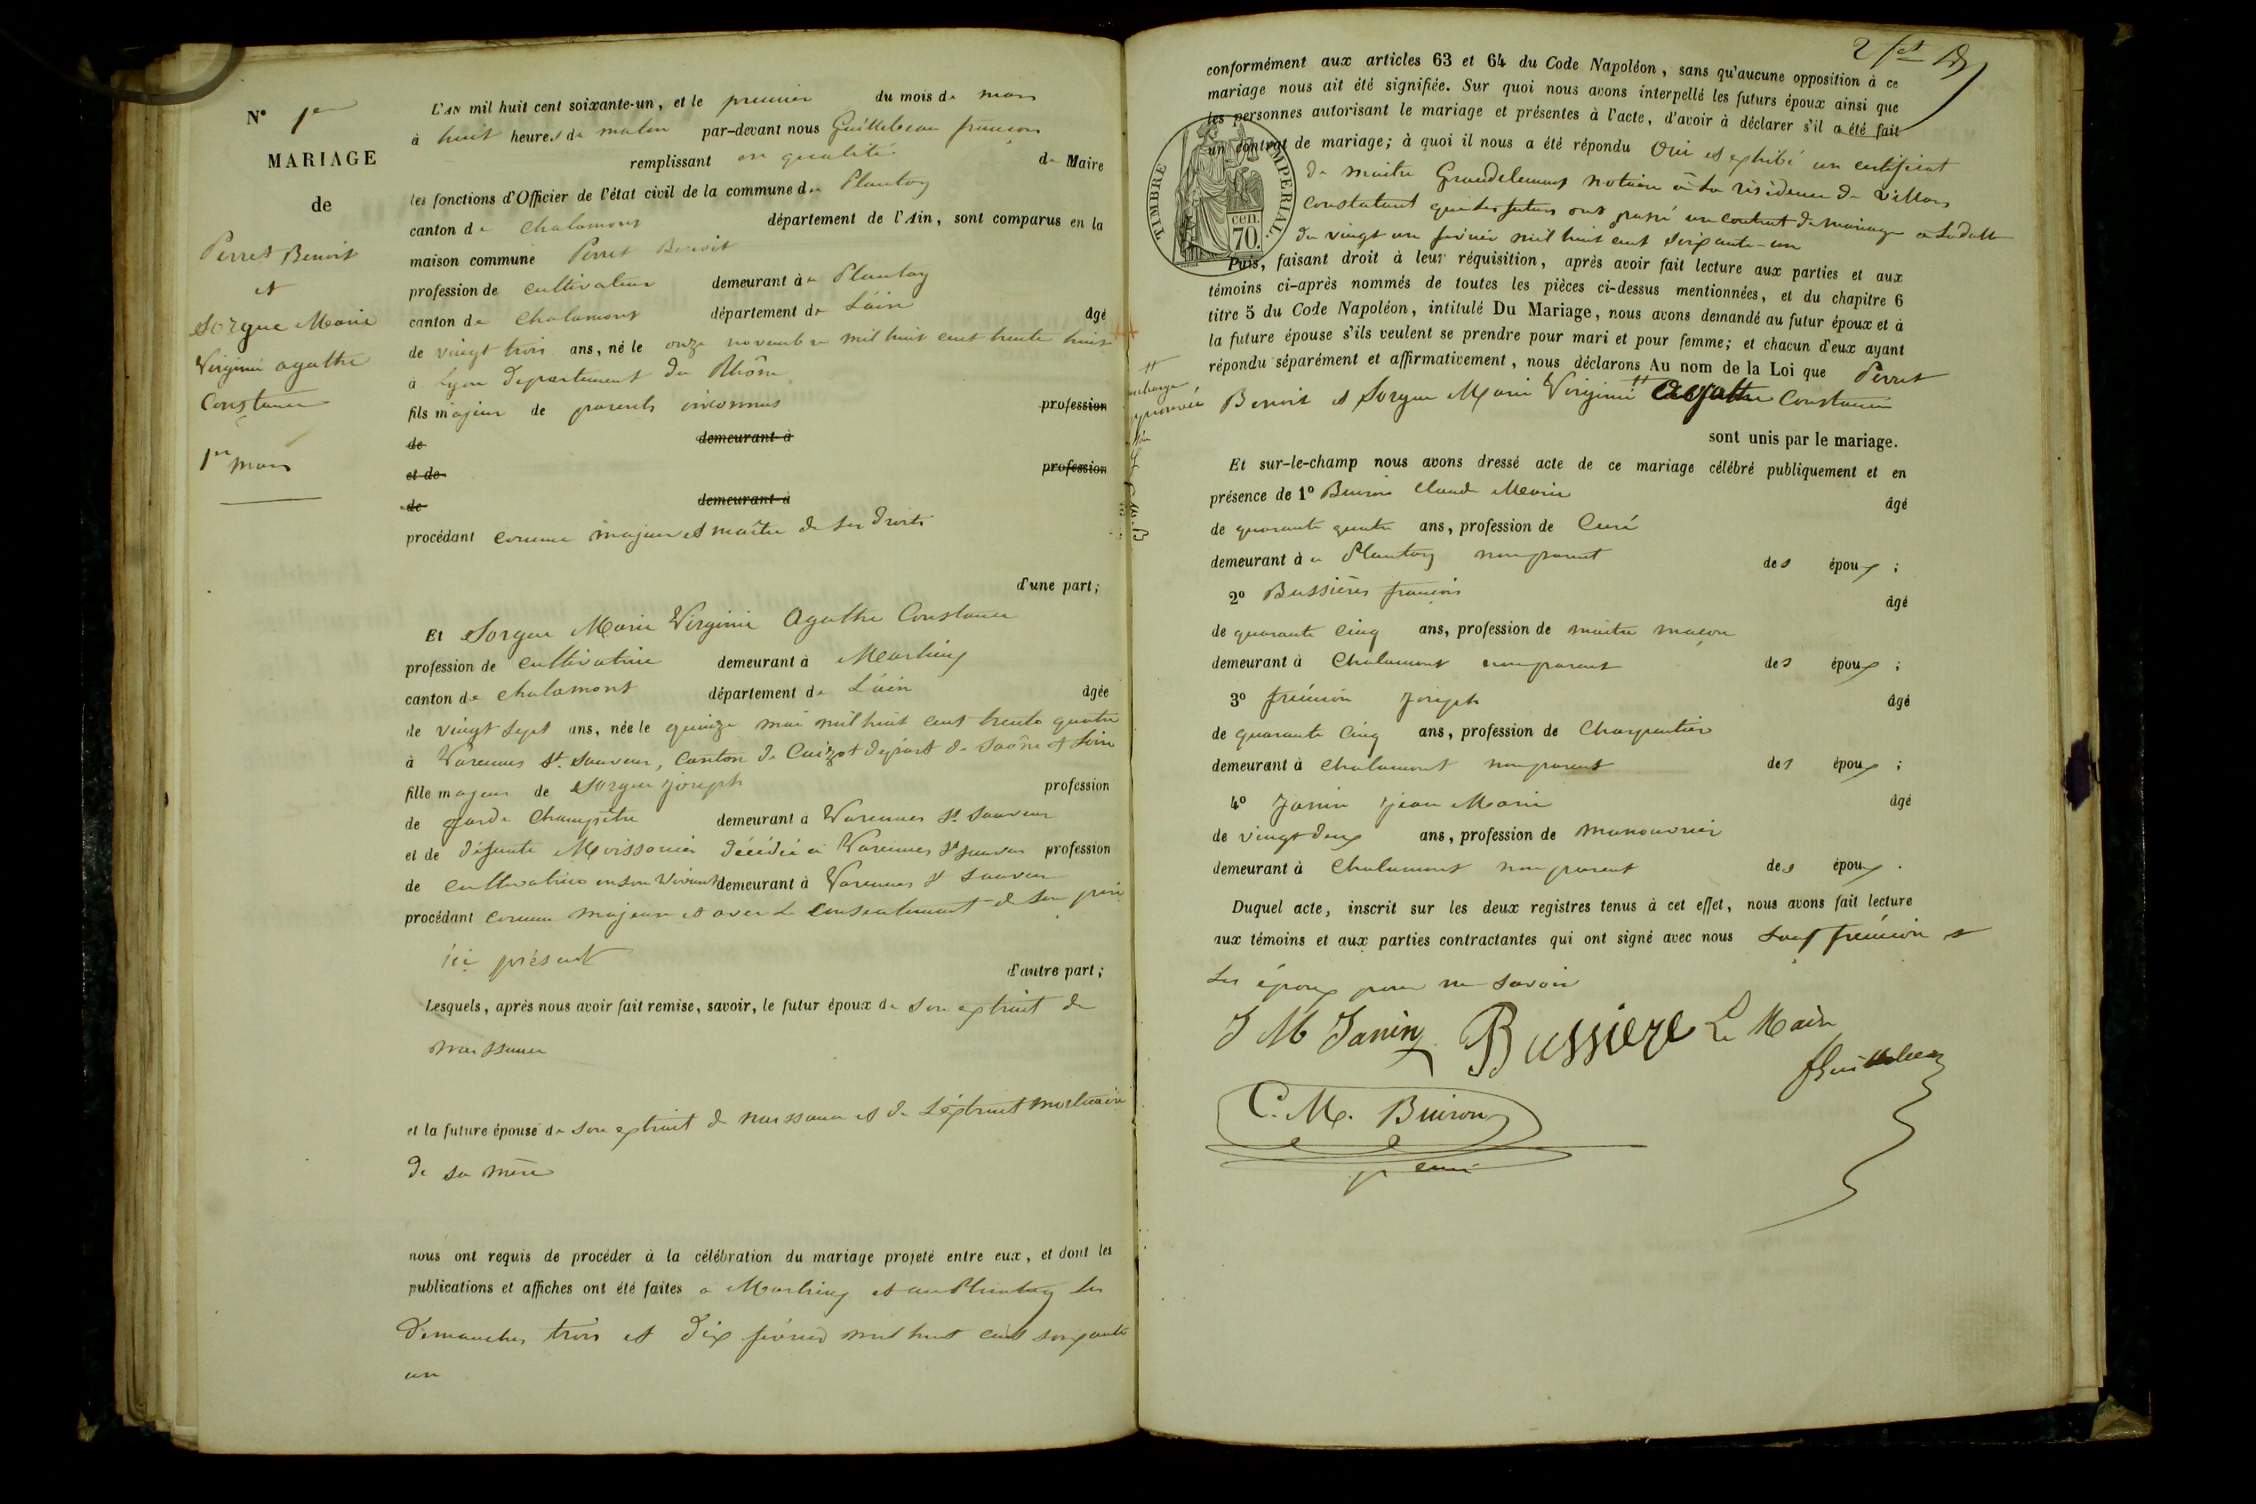 N° 1er
MARIAGE
de
Perret Benoit
et
Sorgue Marie
Virginie agathe
Constance
1er mars
L'AN mil huit cent soixante-un, et le premier du mois de mars
à huit heures du matin par-devant nous Guillebeau françois
remplissant en qualité de Maire
les fonctions d'Officier de l'état civil de la commune du Plantay
canton de chalamont département de l'Ain, sont comparus en la
maison commune Perret Benoit
profession de cultivateur demeurant au Plantay
canton de chalamont département de L'ain âgé
de vingt trois ans, né le onze novembre mil huit cent trente huit
à Lyon département du Rhône
fils majeur de parents inconnus profession
de demeurant à
et de profession
de demeurant à
procédant comme majeur et maître de ses droits
d'une part;
Et Sorgue Marie Virginie Agathe Constance
profession de cultivatrice demeurant à Marlieux
canton de chalamont département de L'ain âgée
de vingt sept ans, née le quinze mai mil huit cent trente quatre
à Varennes St. Sauveur, Canton de Cuizot départ de Saône et Loire
fille majeure de Sorgue joseph profession
de garde Champêtre demeurant à Varennes St. Sauveur
et de défunte Moissonier décédée à Varennes St Sauveur profession
de cultivatrice en son vivant demeurant à Varennes St Sauveur
procédant comme majeure et avec le consentement de son père
ici présent
d'autre part;
Lesquels, après nous avoir fait remise, savoir, le futur époux de son extrait de
naissance
et la future épouse de son extrait de naissance et de L'extrait mortuaire
de sa mère
nous ont requis de procéder à la célébration du mariage projeté entre eux, et dont les
publications et affiches ont été faites a Marlieux et au Plantay les
dimanches trois et dix février mil huit cent soixante
un
2
conformément aux articles 63 et 64 du Code Napoléon, sans qu'aucune opposition à ce
mariage nous ait été signifiée. Sur quoi nous avons interpellé les futurs époux ainsi que
les personnes autorisant le mariage et présentes à l'acte, d'avoir à déclarer s'il a été fait
un contrat de mariage; à quoi il nous a été répondu Oui et exhibé un certificat
de maitre Grandclement notaire à la résidence de Villars
constatant que les futurs ont passé un contrat de mariage a la date
du vingt un février mil huit cent soixante-un
TIMBRE IMPERIAL.
cen.
70.
Puis, faisant droit à leur réquisition, après avoir fait lecture aux parties et aux
témoins ci-après nommés de toutes les pièces ci-dessus mentionnées, et du chapitre 6
titre 5 du Code Napoléon, intitulé Du Mariage, nous avons demandé au futur époux et à
la future épouse s'ils veulent se prendre pour mari et pour femme; et chacun d'eux ayant
répondu séparément et affirmativement, nous déclarons Au nom de la Loi que Perret
Benoit et Sorgue Marie Virginie Agathe Constance
surcharge
approuvée
sont unis par le mariage.
Et sur-le-champ nous avons dressé acte de ce mariage célébré publiquement et en
présence de 1° Buiron Claude Marie âgé
de quarante quatre ans, profession de Curé
demeurant à u Plantay non parent des époux ;
2° Bussières françois âgé
de quarante cinq ans, profession de maitre maçon
demeurant à Chalamont non parent des époux ;
3° frémion Joseph âgé
de quarante cinq ans, profession de Charpentier
demeurant à chalamont non parent des époux ;
4° Janin jean Marie âgé
de vingt deux ans, profession de manouvrier
demeurant à Chalamont non parent des époux .
Duquel acte, inscrit sur les deux registres tenus à cet effet, nous avons fait lecture
aux témoins et aux parties contractantes qui ont signé avec nous sauf frémion et
les époux pour ne savoir
J M Janin Bussiere Le Maire
C. M. Buiron
curé